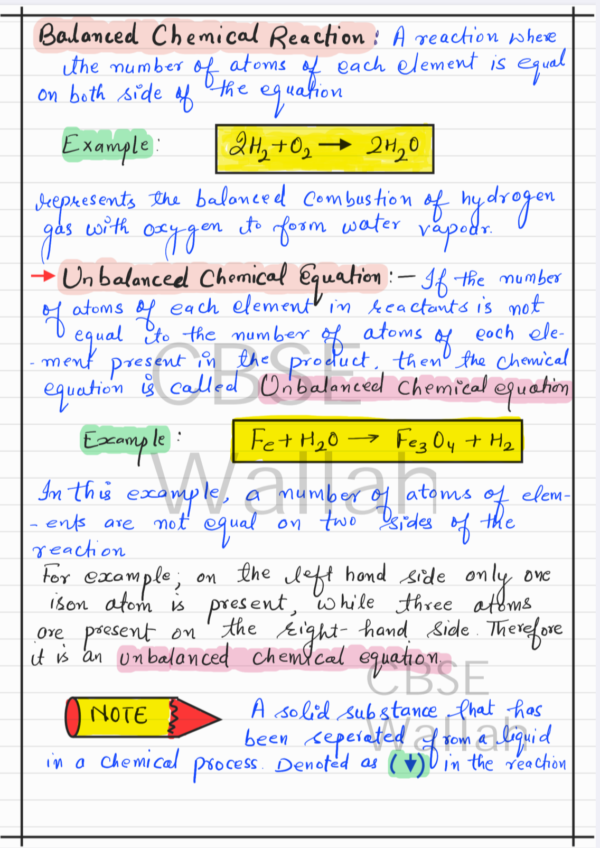 Balanced Chemical Reaction: A reaction where
the number of atoms of each element is equal
on both side of the equation
Example:
2H₂+O₂ → 2H₂O
represents the balanced combustion of hydrogen
gas with oxygen to form water vapour.
→ Unbalanced Chemical Equation:— If the number
of atoms of each element in reactants is not
equal to the number of atoms of each ele-
-ment present in the product, then the chemical
equation is called Unbalanced Chemical equation
CBSE
Example:
Fe + H₂O → Fe₃O₄ + H₂
Wallah
In this example, a number of atoms of elem-
-ents are not equal on two sides of the
reaction
For example, on the left hand side only one
ison atom is present, while three atoms
are present on the right-hand side. Therefore
it is an unbalanced chemical equation
CBSE
Wallah
NOTE
A solid substance that has
been seperated from a liquid
in a chemical process. Denoted as (↓) in the reaction